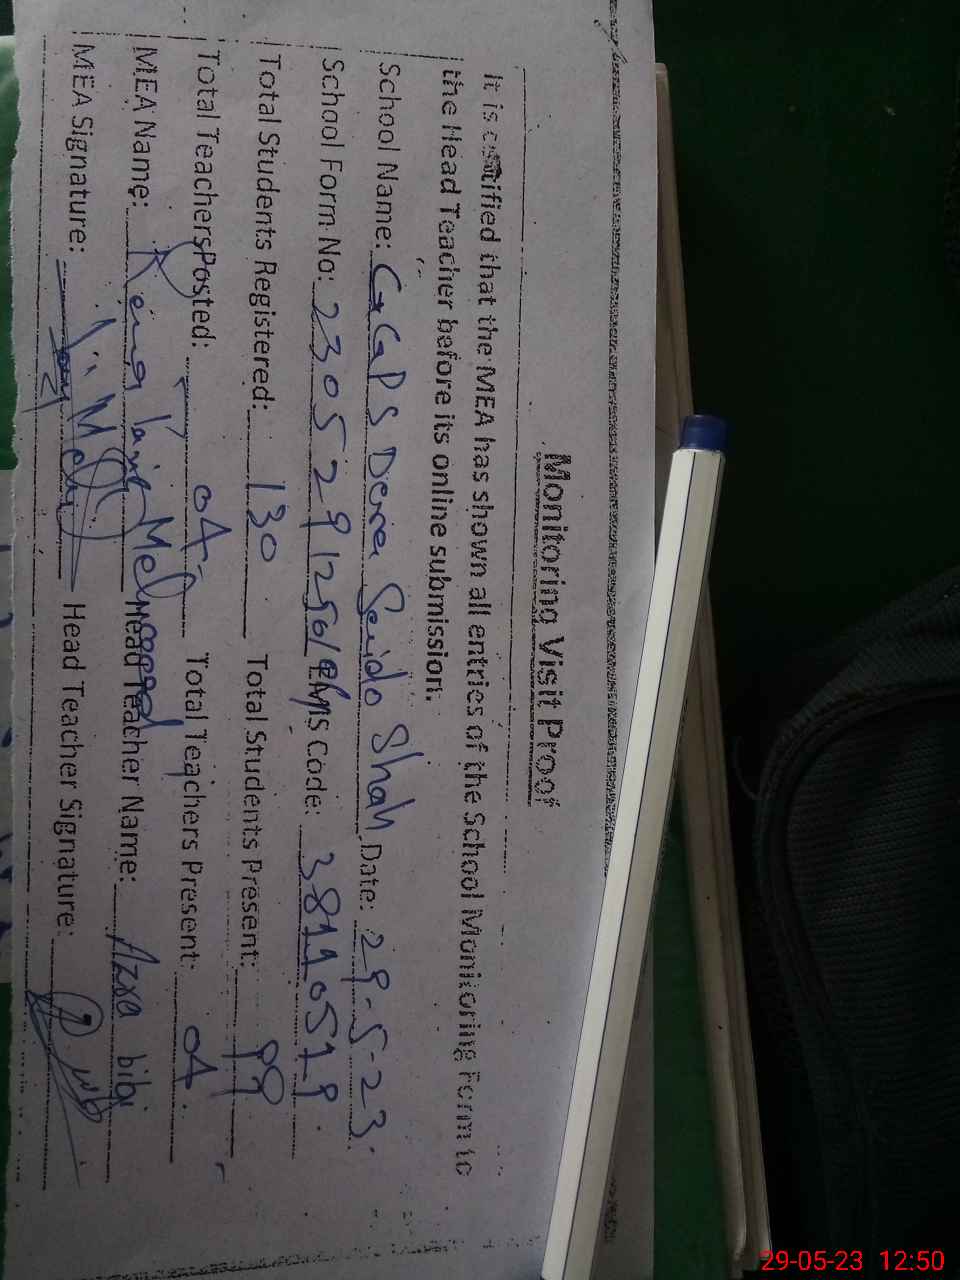 Monitoring Visit Proof
It is certified that the MEA has shown all entries of the School Monitoring Form to
the Head Teacher before its online submission.
School Name: GGPS Dera Saido Shah Date: 29-5-23
School Form No: 230529125019 EMIS Code: 38110519
Total Students Registered: 130 Total Students Present: 99
Total Teachers Posted: 04 Total Teachers Present: 04
MEA Name: Mehmood Head Teacher Name: Azra bibi
MEA Signature: Head Teacher Signature:
29-05-23 12:50